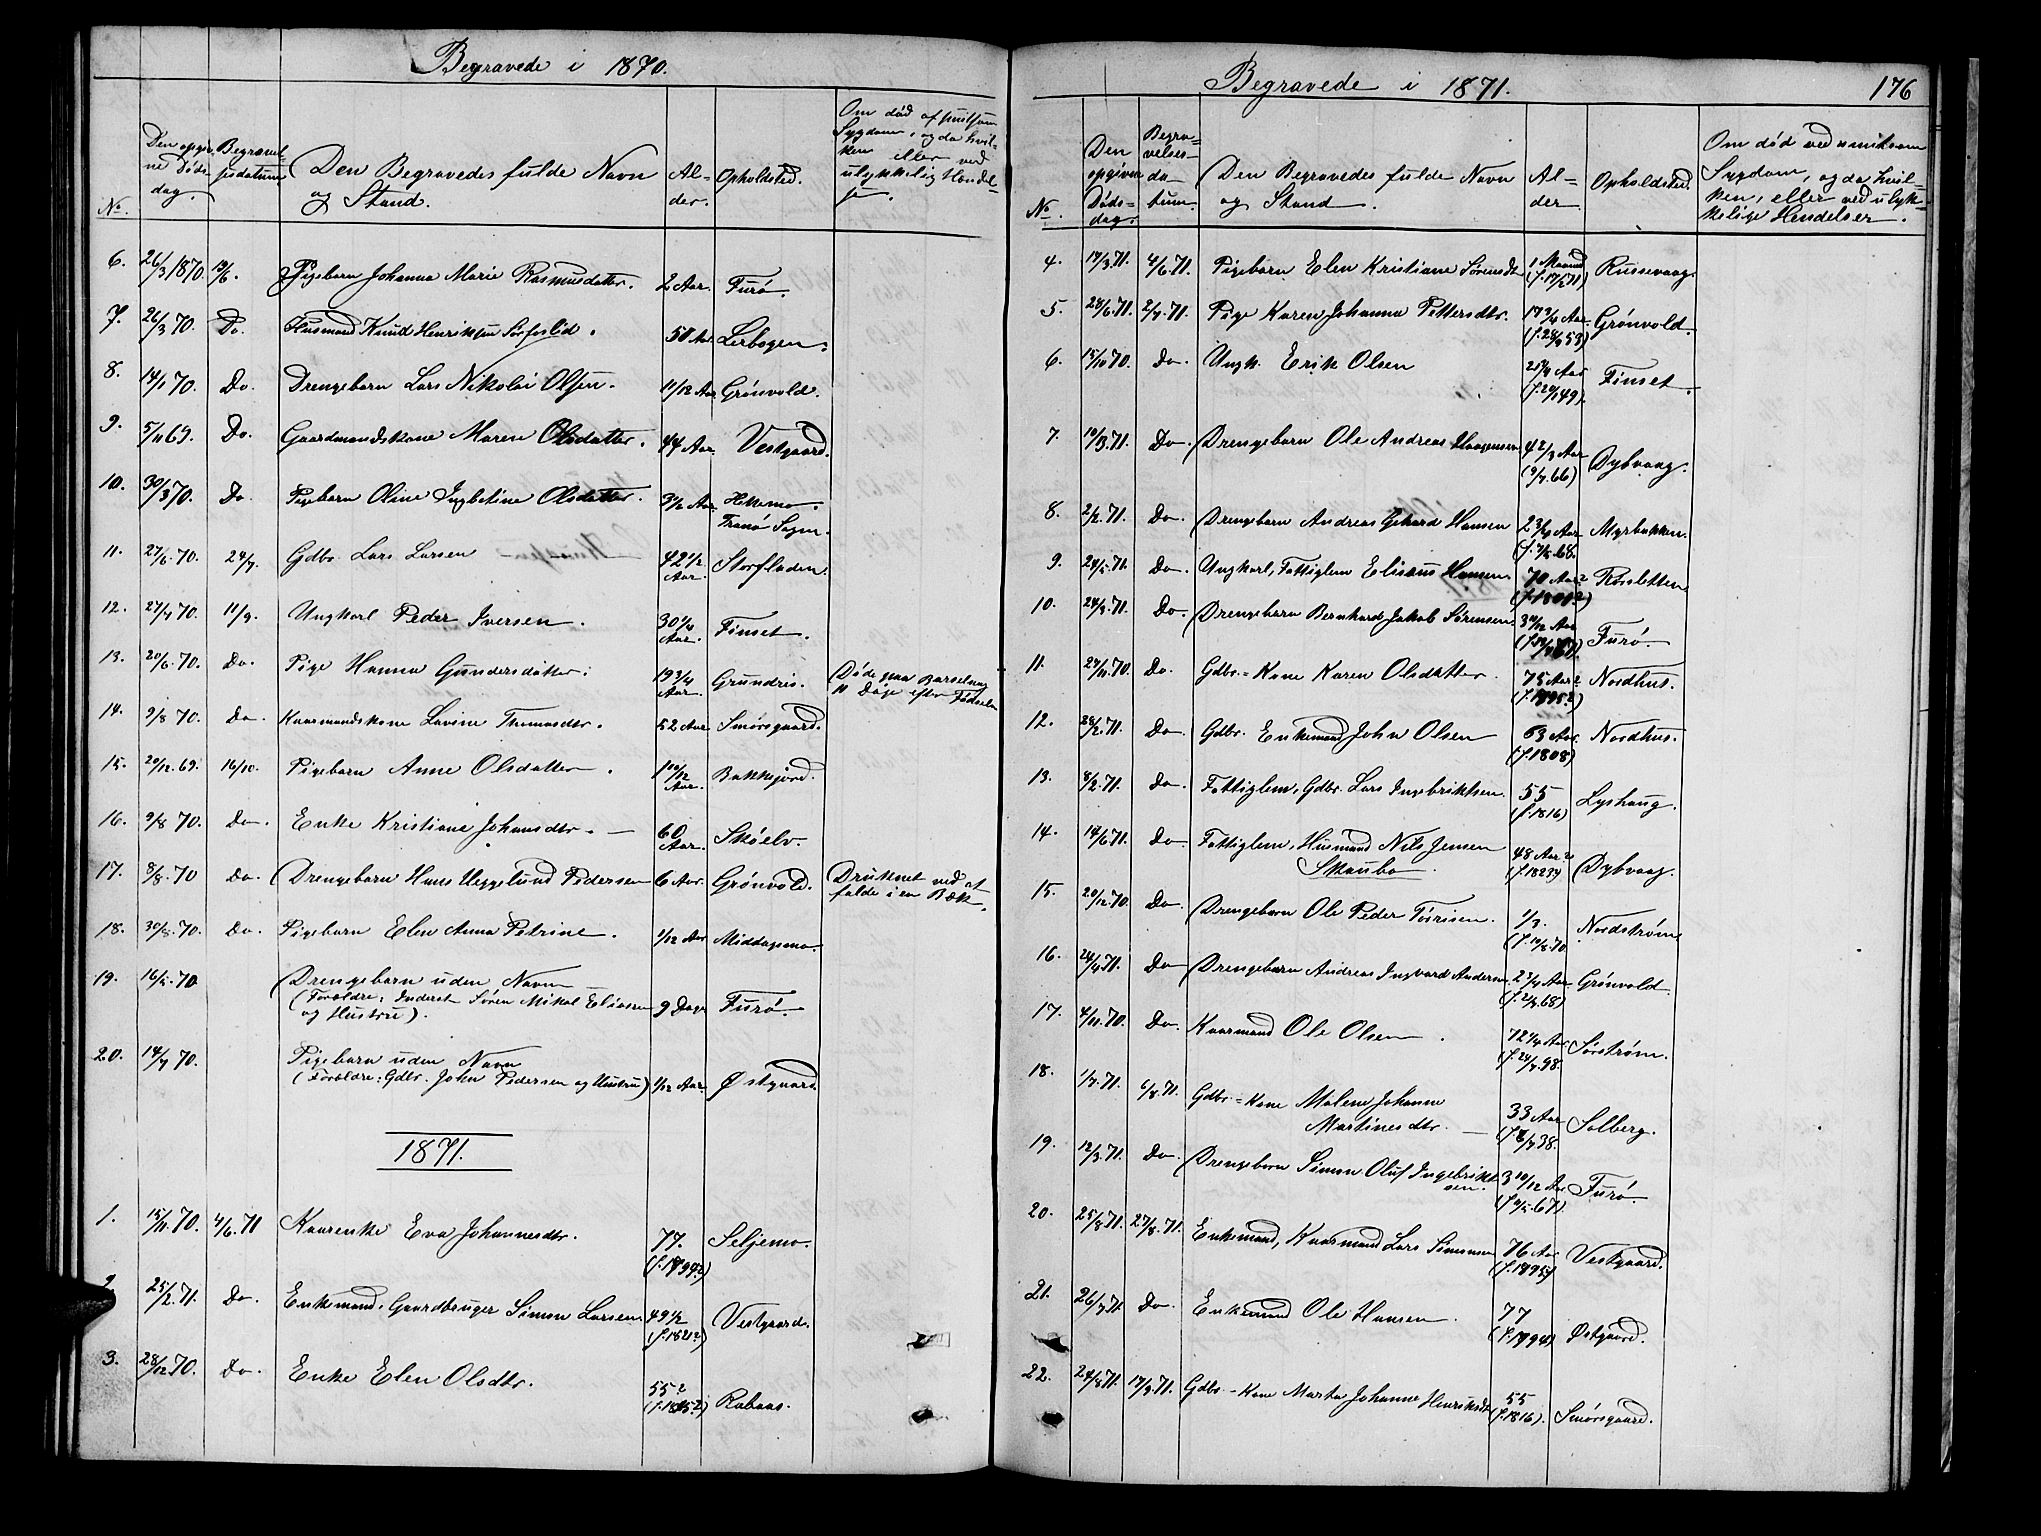 Begravede i 1870.
No. Den opgivne Dødsdag. Begravelsesdatum Den Begravedes fulde Navn og Stand. Alder. Opholdsted. Om død af smitsom Sygdom, og da hvilken eller ved ulykkelig Hændelse.
6. 26/3 1870. 13/6. Pigebarn Johanna Marie Rasmusdatter. 2 Aar. Furø.
7. 26/3 70. Do. Husmand Knud Henriksen Sørfjeld. 58 Aar Leibogen.
8. 14/1 70. Do. Drengebarn Lars Nikolai Olsen. 11/12 Aar Grønvold.
9. 5/11 69. Do. Gaardmandskone Maren Olsdatter. 44 Aar. Vestgaard.
10. 30/3 70. Do Pigebarn Oline Ingbetine Olsdatter. 3 1/2 Aar Hekkemo. Tranø Sogn.
11. 27/6. 70. 24/7. Gdbr. Lars Larsen 42 1/2 Aar. Storfladen.
12. 27/7 70. 11/9. Ungkarl Peder Iversen. 30 1/4 Aar. Finset.
13. 20/6. 70. Do. Pige Hanna Gundersdatter. 19 3/4 Aar. Grundris. Døde paa Barselseng 11 Dage efter Fødselen
14. 9/8 70. Do. Kaarmandskone Lavine Thomasdtr. 52 Aar Smørsgaard.
15. 29/12. 69. 16/10. Pigebarn Anne Olsdatter. 1 10/12 Aar. Bakkejord.
16. 9/8 70. Do. Enke Kristiane Johansdtr. 60 Aar. Skøelv.
17. 8/8. 70 Do. Drengebarn Hans Heggelund Pedersen 6 Aar. Grønvold. Druknet ved at falde i en Bæk.
18. 30/8. 70. Do. Pigebarn Elen Anna Petrine. 1/12 Aar Middagsmo
19. 16/5. 70 Drengebarn uden Navn
(Forældre: Inderst Søren Mikal Eliasen og Hustru). 9 Dage Furø.
20. 14/7 70. Pigebarn uden Navn
(Forældre: Gdbr. John Pedersen og Hustru) 1/12 Aar. Østgaard.
1871.
1. 15/11 70. 4/6. 71 Kaarenke Eva Johannesdtr. 77. (f. 1794?) Seljemo.
2. 25/2. 71. Do. Enkemand, Gaardbruger Simon Larsen 49 1/2 (f. 1821?) Vestgaard.
3. 28/12. 70. Do. Enke Elen Olsdtr. 55? (f. 1815?) Rabaas.
Begravede i 1871. 176
No. Den opgivne Dødsdag. Begravelsesdatum. Den Begravedes fulde Navn og Stand. Alder. Opholdsted. Om død ved smitsom Sygdom, og da hvilken, eller ved ulykkelige Hændelser.
4. 17/3. 71. 4/6. 71. Pigebarn Elen Kristiane Sørensdtr 1 Maaned Russevaag.
5. 28/6. 71. 2/7. 71. Pige Karen Johanna Pettersdtr. 17 3/4 Aar. Grønvold.
6. 15/10 70. Do. Ungk. Erik Olsen 21 3/4 Aar Finset.
7. 10/3. 71. Do. Drengebarn Ole Andreas Haagensen 4 2/3 Aar (9/7. 66) Dybvaag.
8. 2/2. 71. Do. Drengebarn Andreas Gerhard Hansen 2 3/4 Aar Myrbakken.
9. 24/5. 71. Do. Ungkarl, Fattiglem Elisæus Hansen. 70 Aar? (f. 1801?) Rosletten
10. 24/3. 71. Do. Drengebarn Bernhard Jakob Sørensen. Furø.
11. 29/11. 70. Do. Gdbr.=Kone Karen Olsdatter. 75 Aar? (f. 1795?) Nordhus.
12. 28/2. 71. Do. Gdbr. Enkemand John Olsen 63 Aar. (f. 1808) Nordhus.
13. 8/2. 71. Do. Fattiglem, Gdbr. Lars Ingebriktsen. 55 (f. 1816) Lyshaug.
14. 14/6 71. Do. Fattiglem, Husmand Nils Jensen
Skaubo. 48 Aar? (f. 1823?) Dybvaag.
15. 20/12. 70. Do. Drengebarn Ole Peder Tørrisen. 1/3. Nordstrøm.
16. 24/4. 71. Do Drengebarn Andreas Ingvard Andersen. 2 3/4 Aar Grønvold.
17. 4/11. 70. Do. Kaarmand Ole Olsen. 72 1/4 Aar. Sørstrøm.
18. 1/7. 71. 6/8. 71. Gdbr.=Kone Malene Johanne
Martinesdtr. 33 Aar Solberg.
19. 12/3. 71. Do. Drengebarn Simon Oluf Ingebriktsen. 3 10/12 Aar Furø.
20. 25/8. 71. 27/8. 71. Enkemand, Kaarmand Lars Simonsen 76 Aar (f. 1795) Vestgaard.
21. 26/7. 71. Do. Enkemand Ole Hansen. 77 (f. 1794) Østgaard.
22. 24/8. 71. 17/9. 71. Gdbr.-Kone Marta Johanna Henriksdtr. 55 (f. 1816). Smørsgaard.